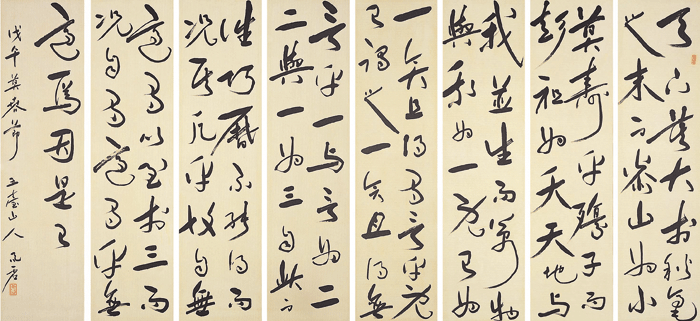 天下莫大於秋毫
之末而泰山為小
莫壽乎殤子而
彭祖為夭天地與
我並生而萬物
與我為一既已為
一矣且得有言乎既
已謂之一矣且得無
言乎一與言為二
二與一為三自此以
往巧曆不能得而
況其凡乎故自無
適有以至於三而
況自有適有乎無
適焉因是已
戊午莫春節 五臺山人